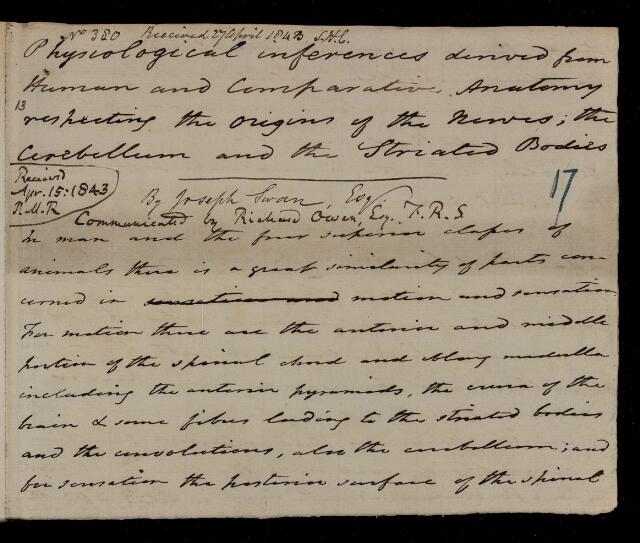 No 380 Received 27 April 1843 S.H.C.
Physiological inferences derived from
Human and Comparative Anatomy
13
respecting the origins of the Nerves; the
Cerebellum and the Striated Bodies
Received
Apr. 15: 1843
P.M.R
17
By Joseph Swan, Esq
Communicated by Richard Owen, Esq. F.R.S
In man and the four superior clases of
animals there is a great similarity of parts con-
cerned in sensation and motion and sensation
For motion there are the anterior and middle
portion of the spinal chord and oblong medulla
including the anterior pyramids, the crura of the
brain & some fibres leading to the striated bodies
and the convolutions, also the cerebellum; and
for sensation the posterior surface of the spinal